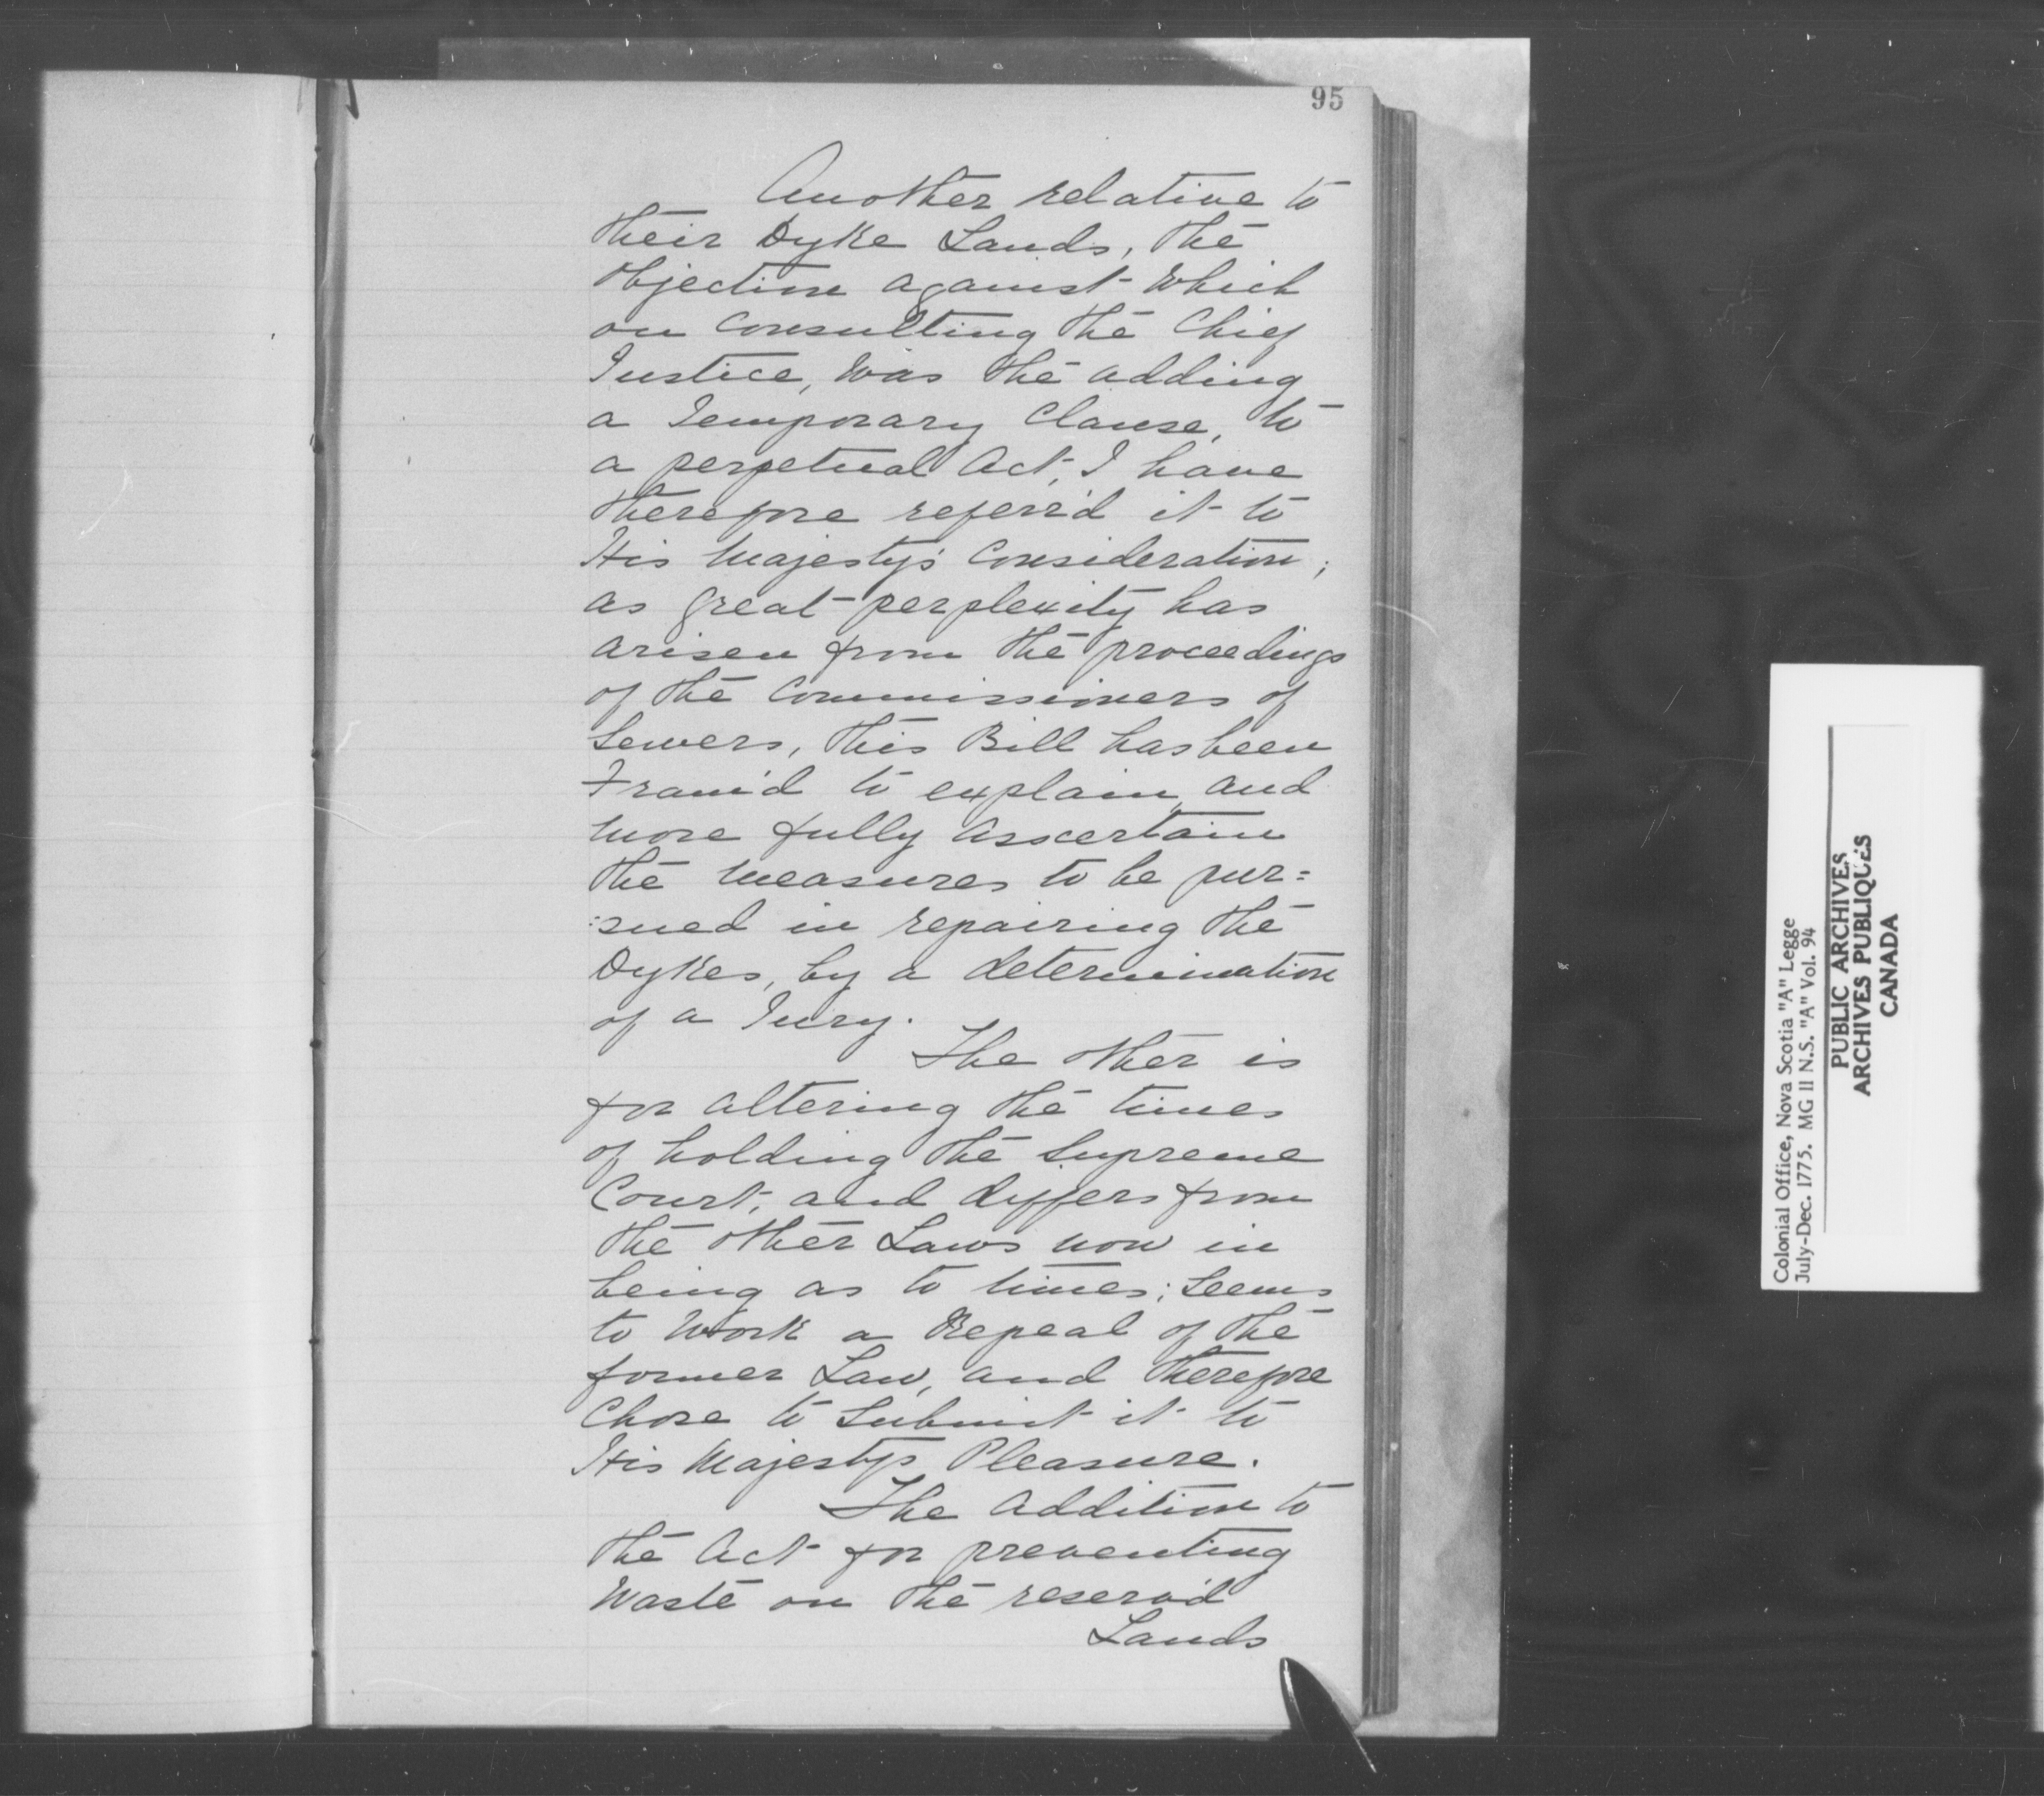 95
Another relative to
their Dyke Lands, the
Objection against which
on Consulting the Chief
Justice, was the adding
a Temporary Clause, to
a perpetual Act, I have
therefore referr'd it to
His Majesty's Consideration;
as great perplexity has
arisen from the proceedings
of the Commissioners of
Sewers, this Bill has been
Fram'd to explain and
more fully Asscertain
the measures to be pur=
:sued in repairing the
Dykes, by a determination
of a Jury.
The other is
for altering the times
of holding the Supreme
Court, and differs from
the other Laws now in
being as to times; Seems
to Work a Repeal of the
former Law, and therefore
Chose to Submit it to
His Majestys Pleasure.
The Addition to
the Act for preventing
Waste on the reserv'd
Lands
Colonial Office, Nova Scotia "A" Legge
July-Dec. 1775. MG II N.S. "A" Vol. 94
PUBLIC ARCHIVES
ARCHIVES PUBLIQUES
CANADA